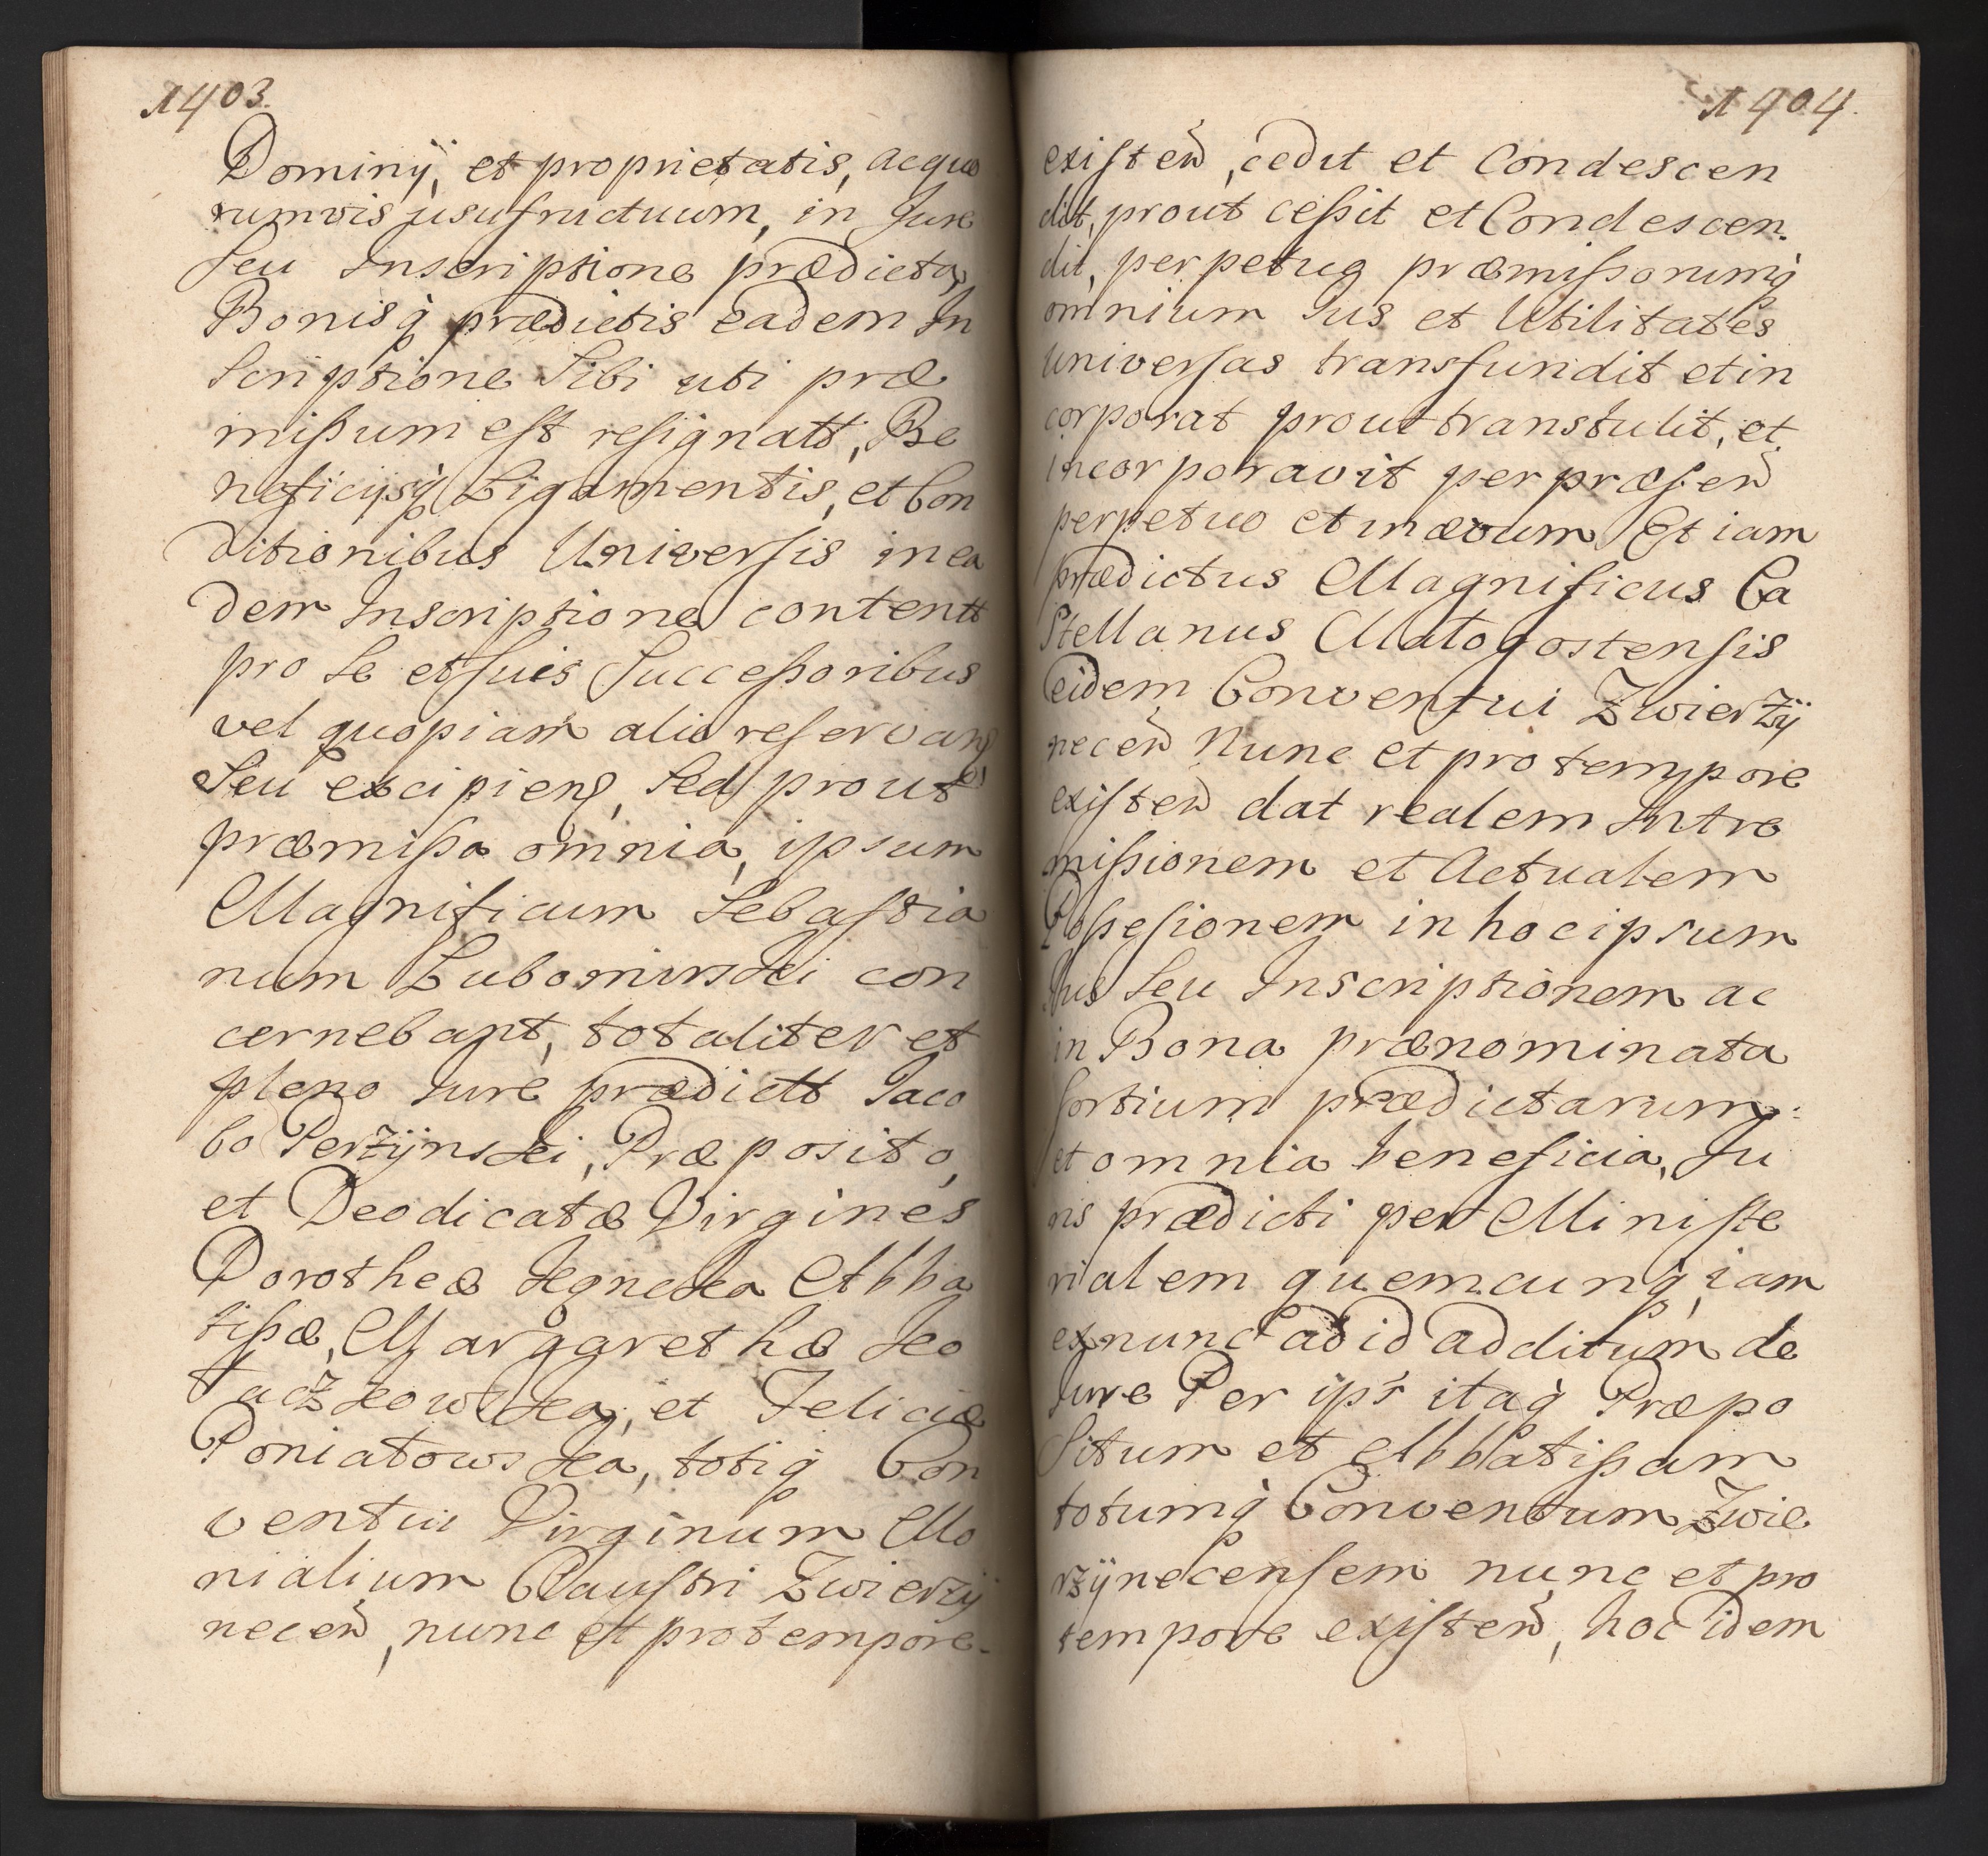 1403.
Dominÿ, et proprietatis, acquo
rumvis usufructuum, in Jure
seu Inscriptione prædicta,
Bonisq̀ prædictis eadem In
scriptione Sibi uti præ
mißum est resignatt, Be
neficijsq̀ Ligamentis, et Con
ditionibus Universis in ea
dem Inscriptione contentt
pro se et suis Successoribus
vel quopiam alio reservans
Seu excipiens, sed prout
præmißa omnia, ipsum
Magnificum Sebastia
num Lubomirski con
cernebant, totaliter et
pleno Jure prædictt Jaco
bo Perzÿnski, Præposito,
et Deodicatæ Virgines
Dorotheæ Kąncka Abba
tißæ, Margarethæ Ko
taczkowska, et Feliciæ
Poniatowska, totiq̀ Con
ventui Virginum Mo
nialium Claustri Zwierzÿ
necen̄, nunc et pro tempore
1404.
existen̄, cedit et Condescen
dit, prout ceßit et Condescen
dit, perpetuo præmißorumq̀
omnium Jus et Utilitates
universas transfundit et in
corporat prout transtulit, et
incorporavit per præsen̄
perpetuo et in ævum Et iam
prædictus Magnificus Ca
stellanus Małogostensis
eidem Conventui Zwierzÿ
necen̄ Nunc et pro tempore
existen̄ dat realem Intro
mißionem et Actualem
Poßesionem in hoc ipsum
Jus seu Inscriptionem ac
in Bona prænominata
sortium prædictarum
et omnia beneficia, Ju
ris prædicti per Ministe
rialem quemcunq̀, iam
ex nunc ad id additum de
Jure Per ips̄ itaq̀ Præpo
Situm et Abbatißam
totumq̀ Conventum Zwie
rzÿnecensem nunc et pro
tempore existen̄, hoc idem